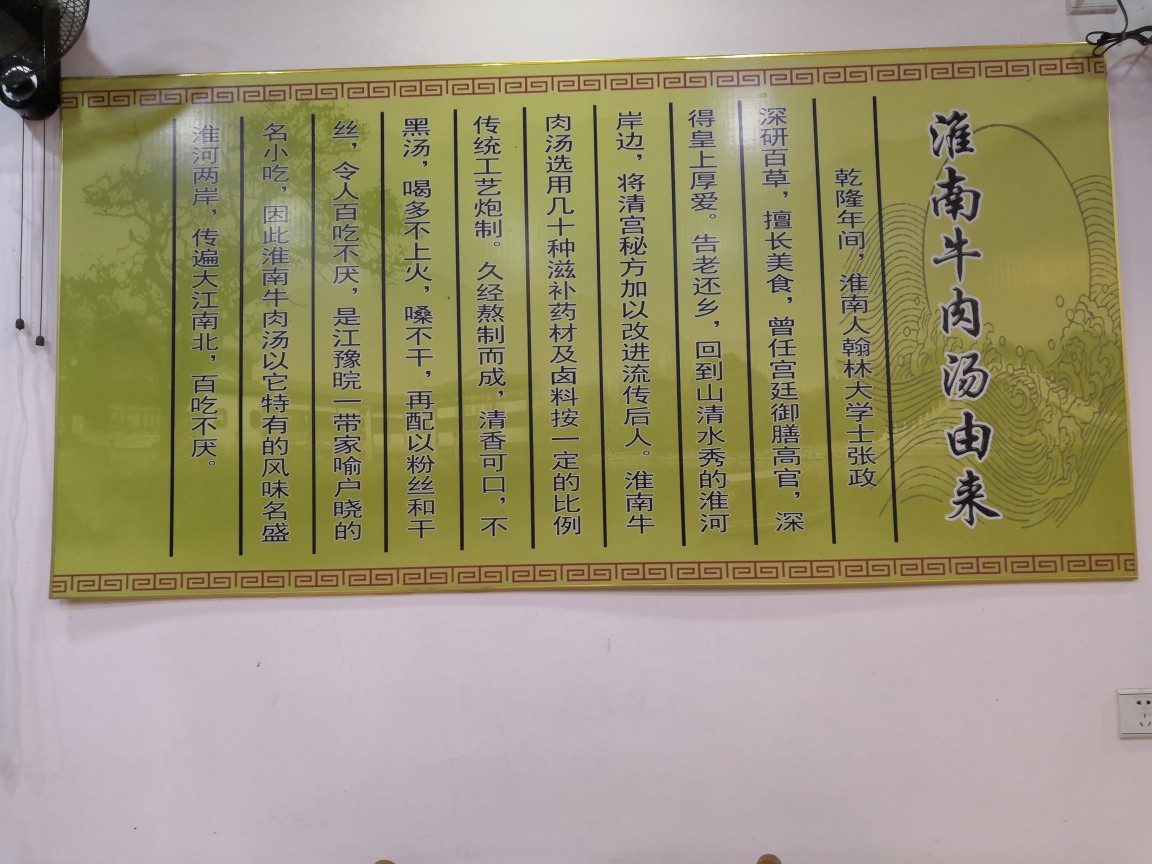 淮南牛肉汤由来
乾隆年间，淮南人翰林大学士张政
深研百草，擅长美食，曾任宫廷御膳高官，深
得皇上厚爱。告老还乡，回到山清水秀的淮河
岸边，将清宫秘方加以改进流传后人。淮南牛
肉汤选用几十种滋补药材及卤料按一定的比例
传统工艺炮制。久经熬制而成，清香可口，不
黑汤，喝多不上火，嗓不干，再配以粉丝和干
丝，令人百吃不厌，是江豫晥一带家喻户晓的
名小吃，因此淮南牛肉汤以它特有的风味名盛
淮河两岸，传遍大江南北，百吃不厌。